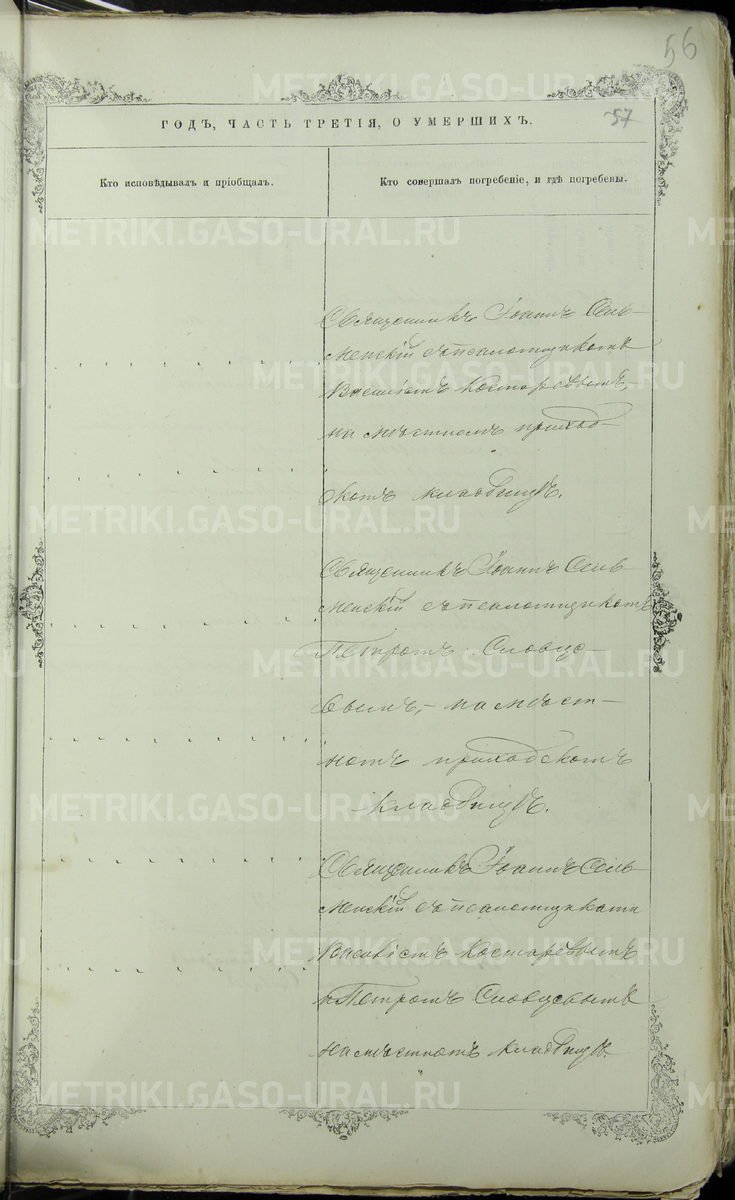 56
57
ГОДЪ, ЧАСТЬ ТРЕТІЯ, О УМЕРШИХЪ.
Кто исповѣдывалъ и пріобщалъ.
Кто совершалъ погребеніе, и гдѣ погребены.
Священникъ Іоаннъ Сель-
менскій съ псаломщикомъ
Василіемъ Костаревымъ,-
на мѣстномъ приход-
скомъ кладбищѣ.
Священникъ Іоаннъ Сель-
менскій съ псаломщикомъ
Петромъ Словцо-
вымъ,- на мѣст-
номъ приходскомъ
кладбищѣ.
Священникъ Іоаннъ Сель-
менскій съ псаломщиками
Василіемъ Костаревымъ
и Петромъ Словцовымъ
на мѣстномъ кладбищѣ.
METRIKI.GASO-URAL.RU